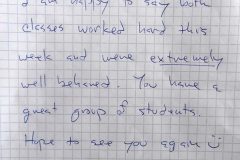 I am happy to say both
classes worked hard this
week and were extremely
well behaved. You have a
great group of students.
Hope to see you again